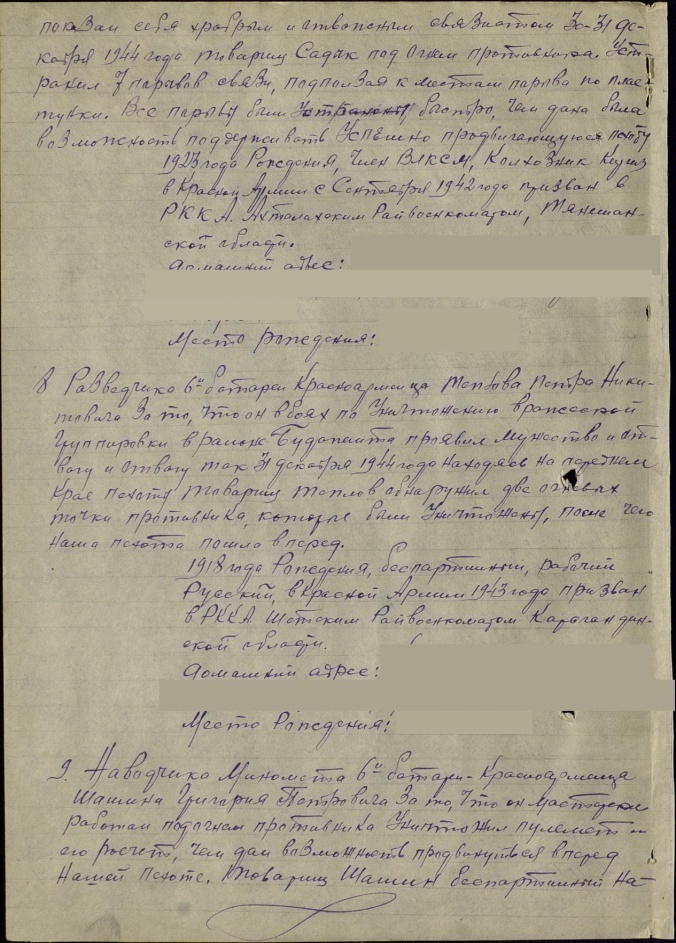 показал себя храбрым и отважным связистом 30-31 де-
кабря 1944 года товарищ Садак под огнем противника. Уст-
ранил 7 порывов связи, подползая к местам порыва по плас-
тунки. Все порывы были устранены быстро, чем дана была
возможность поддерживать успешно продвигающуюся пехоту
1923 года Рождения, Член ВЛКСМ, Колхозник Киргиз
в Красной Армии с Сентября 1942 года призван в
РККА. Акталахским Райвоенкоматом, Тяншан-
ской области.
Домашний адрес:
Место рождения:
8 Разведчика 6й батареи Красноармейца Теплова Петра Ники-
товича За то, что он в боях по Уничтожению вражеской
Группировки в районе Будапешта проявил Мужество и от-
вагу и отвагу так 31 декабря 1944 года находясь на переднем
Крае пехоты товарищ Теплов обнаружил две огневых
точки противника, которые были Уничтожены, после чего
наша пехота пошла вперед.
1918 года Рождения, беспартийный, рабочий
Русский, в Красной Армии 1943 года призван
в РККА Шетским Райвоенкоматом Караган дин-
ской области.
Домашний адрес:
Место Рождения:
9. Наводчика Миномета 6й батареи - Красноармейца
Шашина Григория Петровича За то, Что он Мастерски
работая под огнем противника Уничтожил пулемет и
его расчет, Чем дал возможность продвинуться вперед
Нашей пехоте. Товарищ Шашин беспартийный На-